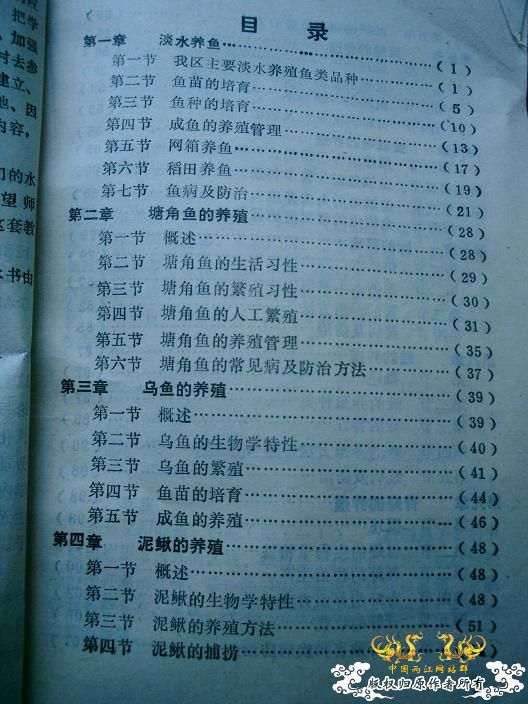 目录
第一章 淡水养鱼……………………（1）
第一节 我区主要淡水养殖鱼类品种…………（1）
第二节 鱼苗的培育……………………（5）
第三节 鱼种的培育……………………（10）
第四节 成鱼的养殖管理…………………（13）
第五节 网箱养鱼……………………（17）
第六节 稻田养鱼……………………（19）
第七节 鱼病及防治……………………（21）
第二章 塘角鱼的养殖……………………（28）
第一节 概述……………………（28）
第二节 塘角鱼的生活习性…………………（29）
第三节 塘角鱼的繁殖习性…………………（30）
第四节 塘角鱼的人工繁殖…………………（31）
第五节 塘角鱼的养殖管理…………………（35）
第六节 塘角鱼的常见病及防治方法…………（37）
第三章 乌鱼的养殖……………………（39）
第一节 概述……………………（39）
第二节 乌鱼的生物学特性…………………（40）
第三节 乌鱼的繁殖……………………（41）
第四节 鱼苗的培育……………………（44）
第五节 成鱼的养殖……………………（46）
第四章 泥鳅的养殖……………………（48）
第一节 概述……………………（48）
第二节 泥鳅的生物学特性…………………（48）
第三节 泥鳅的养殖方法…………………（51）
第四节 泥鳅的捕捞……………………
把学
加强
寸去参
建立、
也、因
内容。
们的水
望师
这套教
书由
中国两江网站群
版权归原作者所有